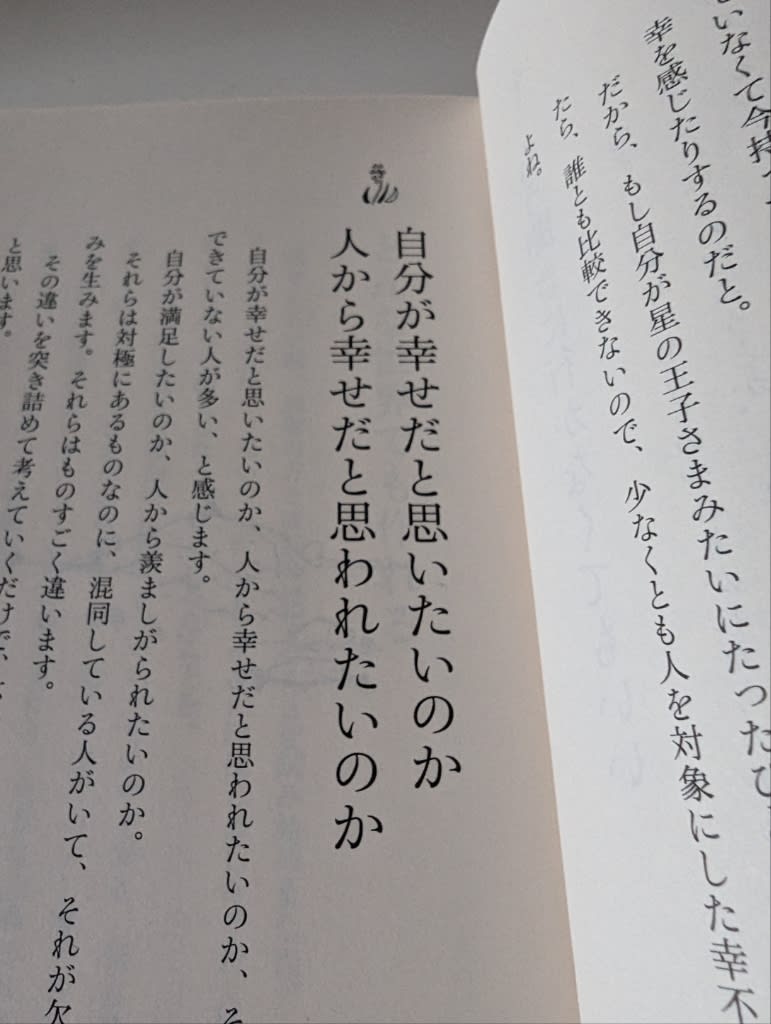 いなくて今持つ
幸を感じたりするのだと。
だから、もし自分が星の王子さまみたいにたったひ
たら、誰とも比較できないので、少なくとも人を対象にした幸不
よね。
自分が幸せだと思いたいのか
人から幸せだと思われたいのか
自分が幸せだと思いたいのか、人から幸せだと思われたいのか、そ
できていない人が多い、と感じます。
自分が満足したいのか、人から羨ましがられたいのか。
それらは対極にあるものなのに、混同している人がいて、それが欠
みを生みます。それらはものすごく違います。
その違いを突き詰めて考えていくだけで、
と思います。